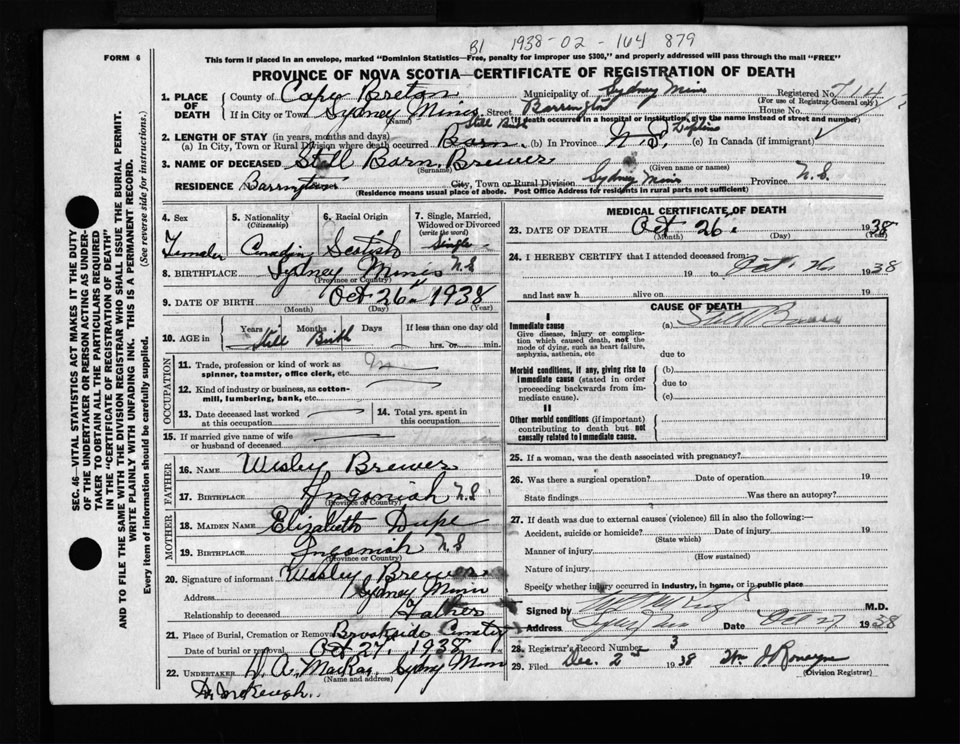 B1 1938-02-164 879
FORM 6
This form if placed in an envelope, marked "Dominion Statistics—Free, penalty for improper use $300," and properly addressed will pass through the mail "FREE"
PROVINCE OF NOVA SCOTIA—CERTIFICATE OF REGISTRATION OF DEATH
1. PLACE OF DEATH
County of Cape Breton Municipality of Sydney Mines Registered No.
(For use of Registrar General only)
If in City or Town Sydney Mines Street Barrington House No.
(Name) (If death occurred in a hospital or institution, give the name instead of street and number)
2. LENGTH OF STAY (in years, months and days) Still Birth
(a) In City, Town or Rural Division where death occurred Born (b) In Province N.S. (c) In Canada (if immigrant)
3. NAME OF DECEASED Still Born Brewer
(Surname) (Given name or names)
RESIDENCE Barrington City, Town or Rural Division Sydney Mines Province N.S.
(Residence means usual place of abode. Post Office Address for residents in rural parts not sufficient)
SEC. 46—VITAL STATISTICS ACT MAKES IT THE DUTY
OF THE UNDERTAKER OR PERSON ACTING AS UNDERTAKER
TO OBTAIN ALL THE PARTICULARS REQUIRED
IN THE "CERTIFICATE OF REGISTRATION OF DEATH"
AND TO FILE THE SAME WITH THE DIVISION REGISTRAR WHO SHALL ISSUE THE BURIAL PERMIT.
WRITE PLAINLY WITH UNFADING INK. THIS IS A PERMANENT RECORD.
Every item of information should be carefully supplied. (See reverse side for instructions.)
4. Sex 5. Nationality (Citizenship) 6. Racial Origin 7. Single, Married, Widowed or Divorced (write the word)
Female Canadian Scotish Single
8. BIRTHPLACE Sydney Mines N.S
(Province or Country)
9. DATE OF BIRTH Oct 26" 1938
(Month) (Day) (Year)
10. AGE in Years Months Days If less than one day old
Still Birth hrs. or min.
OCCUPATION
11. Trade, profession or kind of work as spinner, teamster, office clerk, etc.
12. Kind of industry or business, as cotton-mill, lumbering, bank, etc.
13. Date deceased last worked at this occupation
14. Total yrs. spent in this occupation
15. If married give name of wife or husband of deceased
FATHER
16. NAME Wisley Brewer
17. BIRTHPLACE Ingonish N.S
(Province or Country)
MOTHER
18. MAIDEN NAME Elizabeth Dupe
19. BIRTHPLACE Ingonish N.S
(Province or Country)
20. Signature of informant Wisley Brewer
Address Sydney Mines
Relationship to deceased Father
21. Place of Burial, Cremation or Removal Brookside Cemetery
Date of burial or removal Oct 27, 1938
22. UNDERTAKER D. A. MacKay, Sydney Mines
(Name and address)
MEDICAL CERTIFICATE OF DEATH
23. DATE OF DEATH Oct 26" 1938
(Month) (Day) (Year)
24. I HEREBY CERTIFY that I attended deceased from
19 to Oct 26 1938
and last saw h alive on 19
CAUSE OF DEATH
I
Immediate cause (a) Still Born
Give disease, injury or complication which caused death, not the mode of dying, such as heart failure, asphyxia, asthenia, etc due to
Morbid conditions, if any, giving rise to immediate cause (stated in order proceeding backwards from immediate cause). (b) due to (c)
II
Other morbid conditions (if important) contributing to death but not causally related to immediate cause.
25. If a woman, was the death associated with pregnancy?
26. Was there a surgical operation? Date of operation 19
State findings Was there an autopsy?
27. If death was due to external causes (violence) fill in also the following:—
Accident, suicide or homicide? Date of injury 19
(State which)
Manner of injury
(How sustained)
Nature of injury
Specify whether injury occurred in industry, in home, or in public place
Signed by M.D.
Address Date Oct 27 1938
28. Registrar's Record Number 3
29. Filed Dec. 2nd 1938
(Division Registrar)